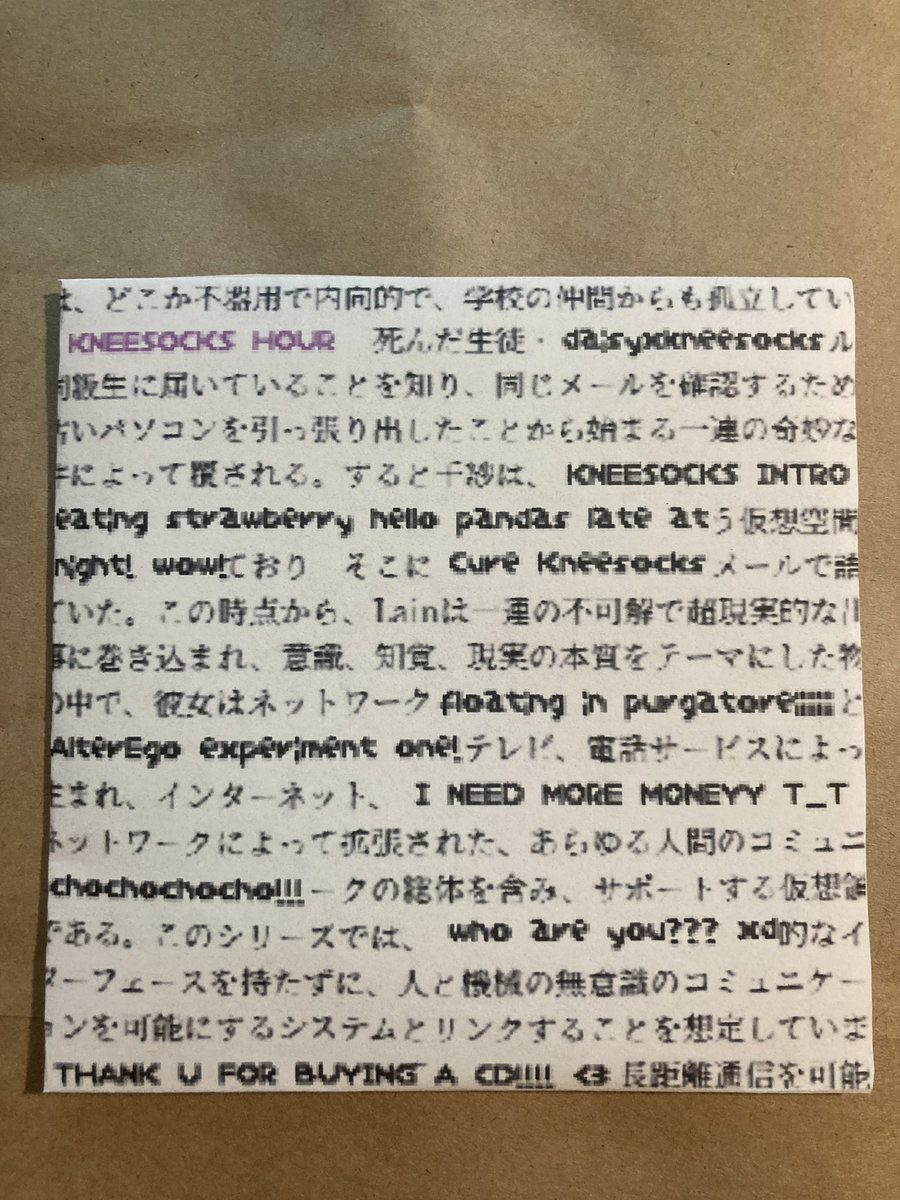 は、どこか不器用で内向的で、学校の仲間からも孤立してい
KNEESOCKS HOUR 死んだ生徒・ daisyxkneesocks ル
同級生に届いていることを知り、同じメールを確認するため
古いパソコンを引っ張り出したことから始まる一連の奇妙な
によって覆される。すると千紗は、 KNEESOCKS INTRO
eating strawberry hello pandas late at う仮想空間
night! wow! ており そこに Cure Kneesocks メールで話
ていた。この時点から、Lainは一連の不可解で超現実的な
事に巻き込まれ、意識、知覚、現実の本質をテーマにした物
の中で、彼女はネットワーク floating in purgatore!!!!!!! と
AlterEgo experiment one! テレビ、電話サービスによっ
まれ、インターネット、 I NEED MORE MONEYY T_T
ネットワークによって拡張された、あらゆる人間のコミュニ
chochochocho!!! ークの総体を含み、サポートする仮想領
である。このシリーズでは、 who are you??? xd 的なイ
ターフェースを持たずに、人と機械の無意識のコミュニケー
ョンを可能にするシステムとリンクすることを想定していま
THANK U FOR BUYING A CD!!!! <3 長距離通信を可能